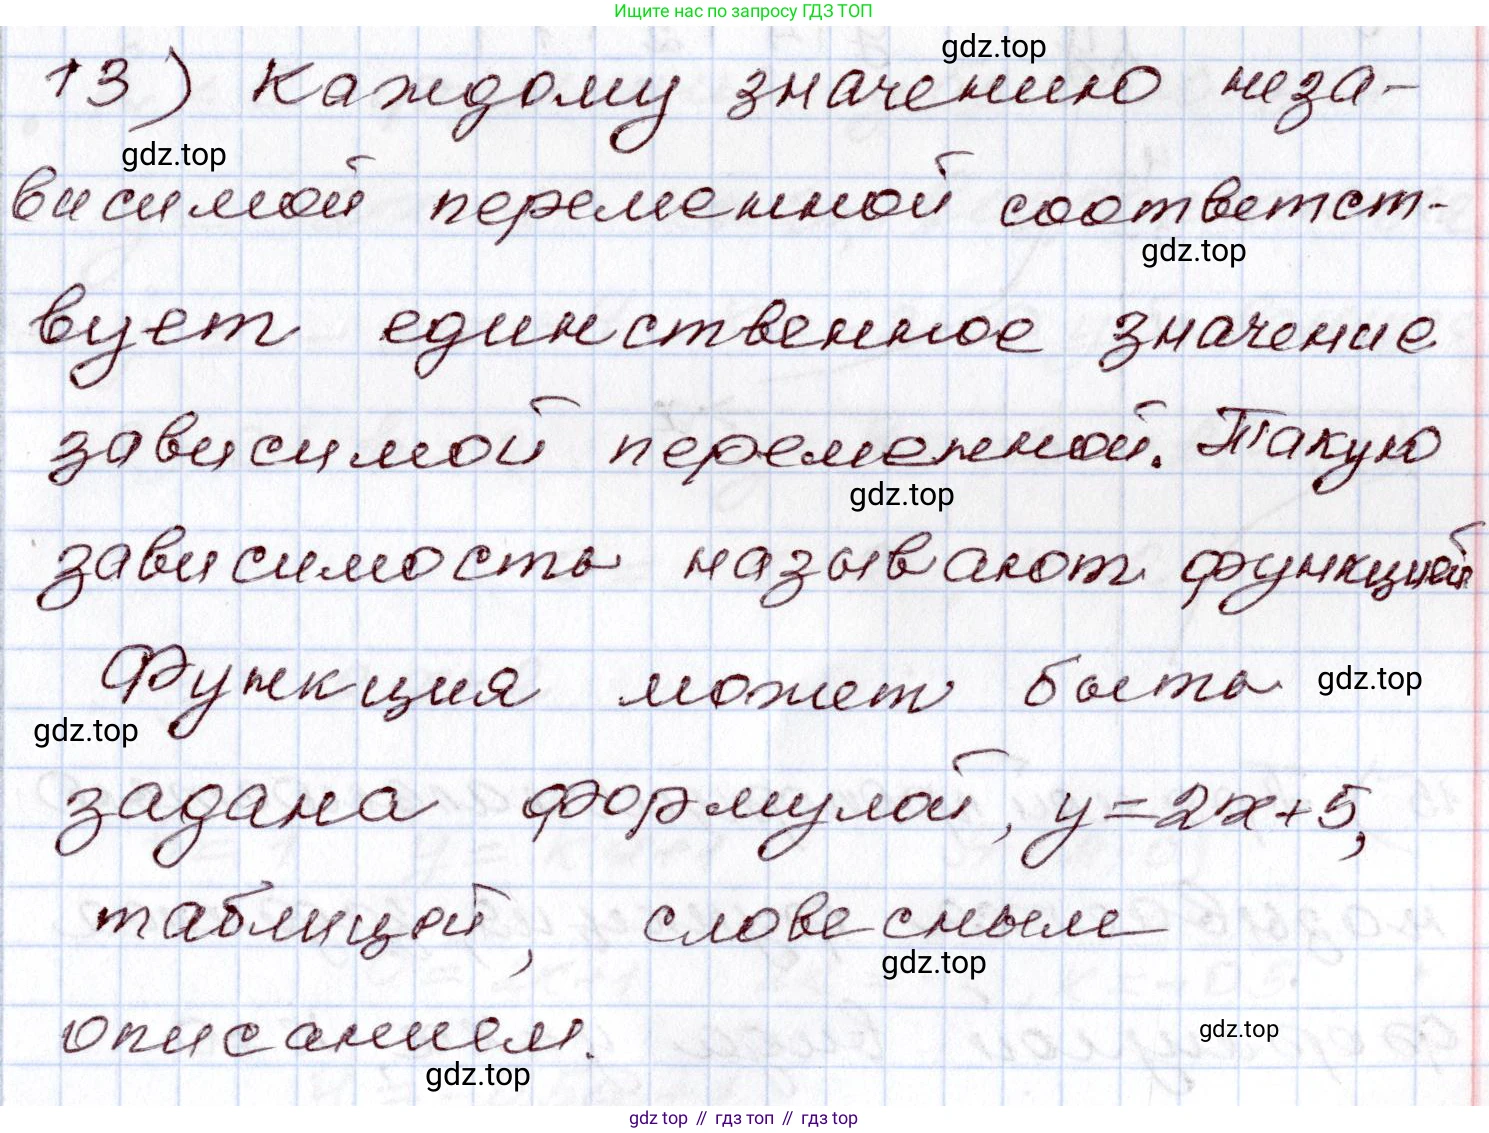 Ищите нас по запросу ГДЗ ТОП
gdz.top
13) Каждому значению неза-
gdz.top
висимой переменной соответст-
gdz.top
вует единственное значение
зависимой переменной. Такую
gdz.top
зависимость называют функцией
Функция может быть
gdz.top
gdz.top
задана формулой, y=2x+5,
таблицей, словесным
gdz.top
описанием.
gdz.top
gdz.top
gdz top // гдз топ // gdz top